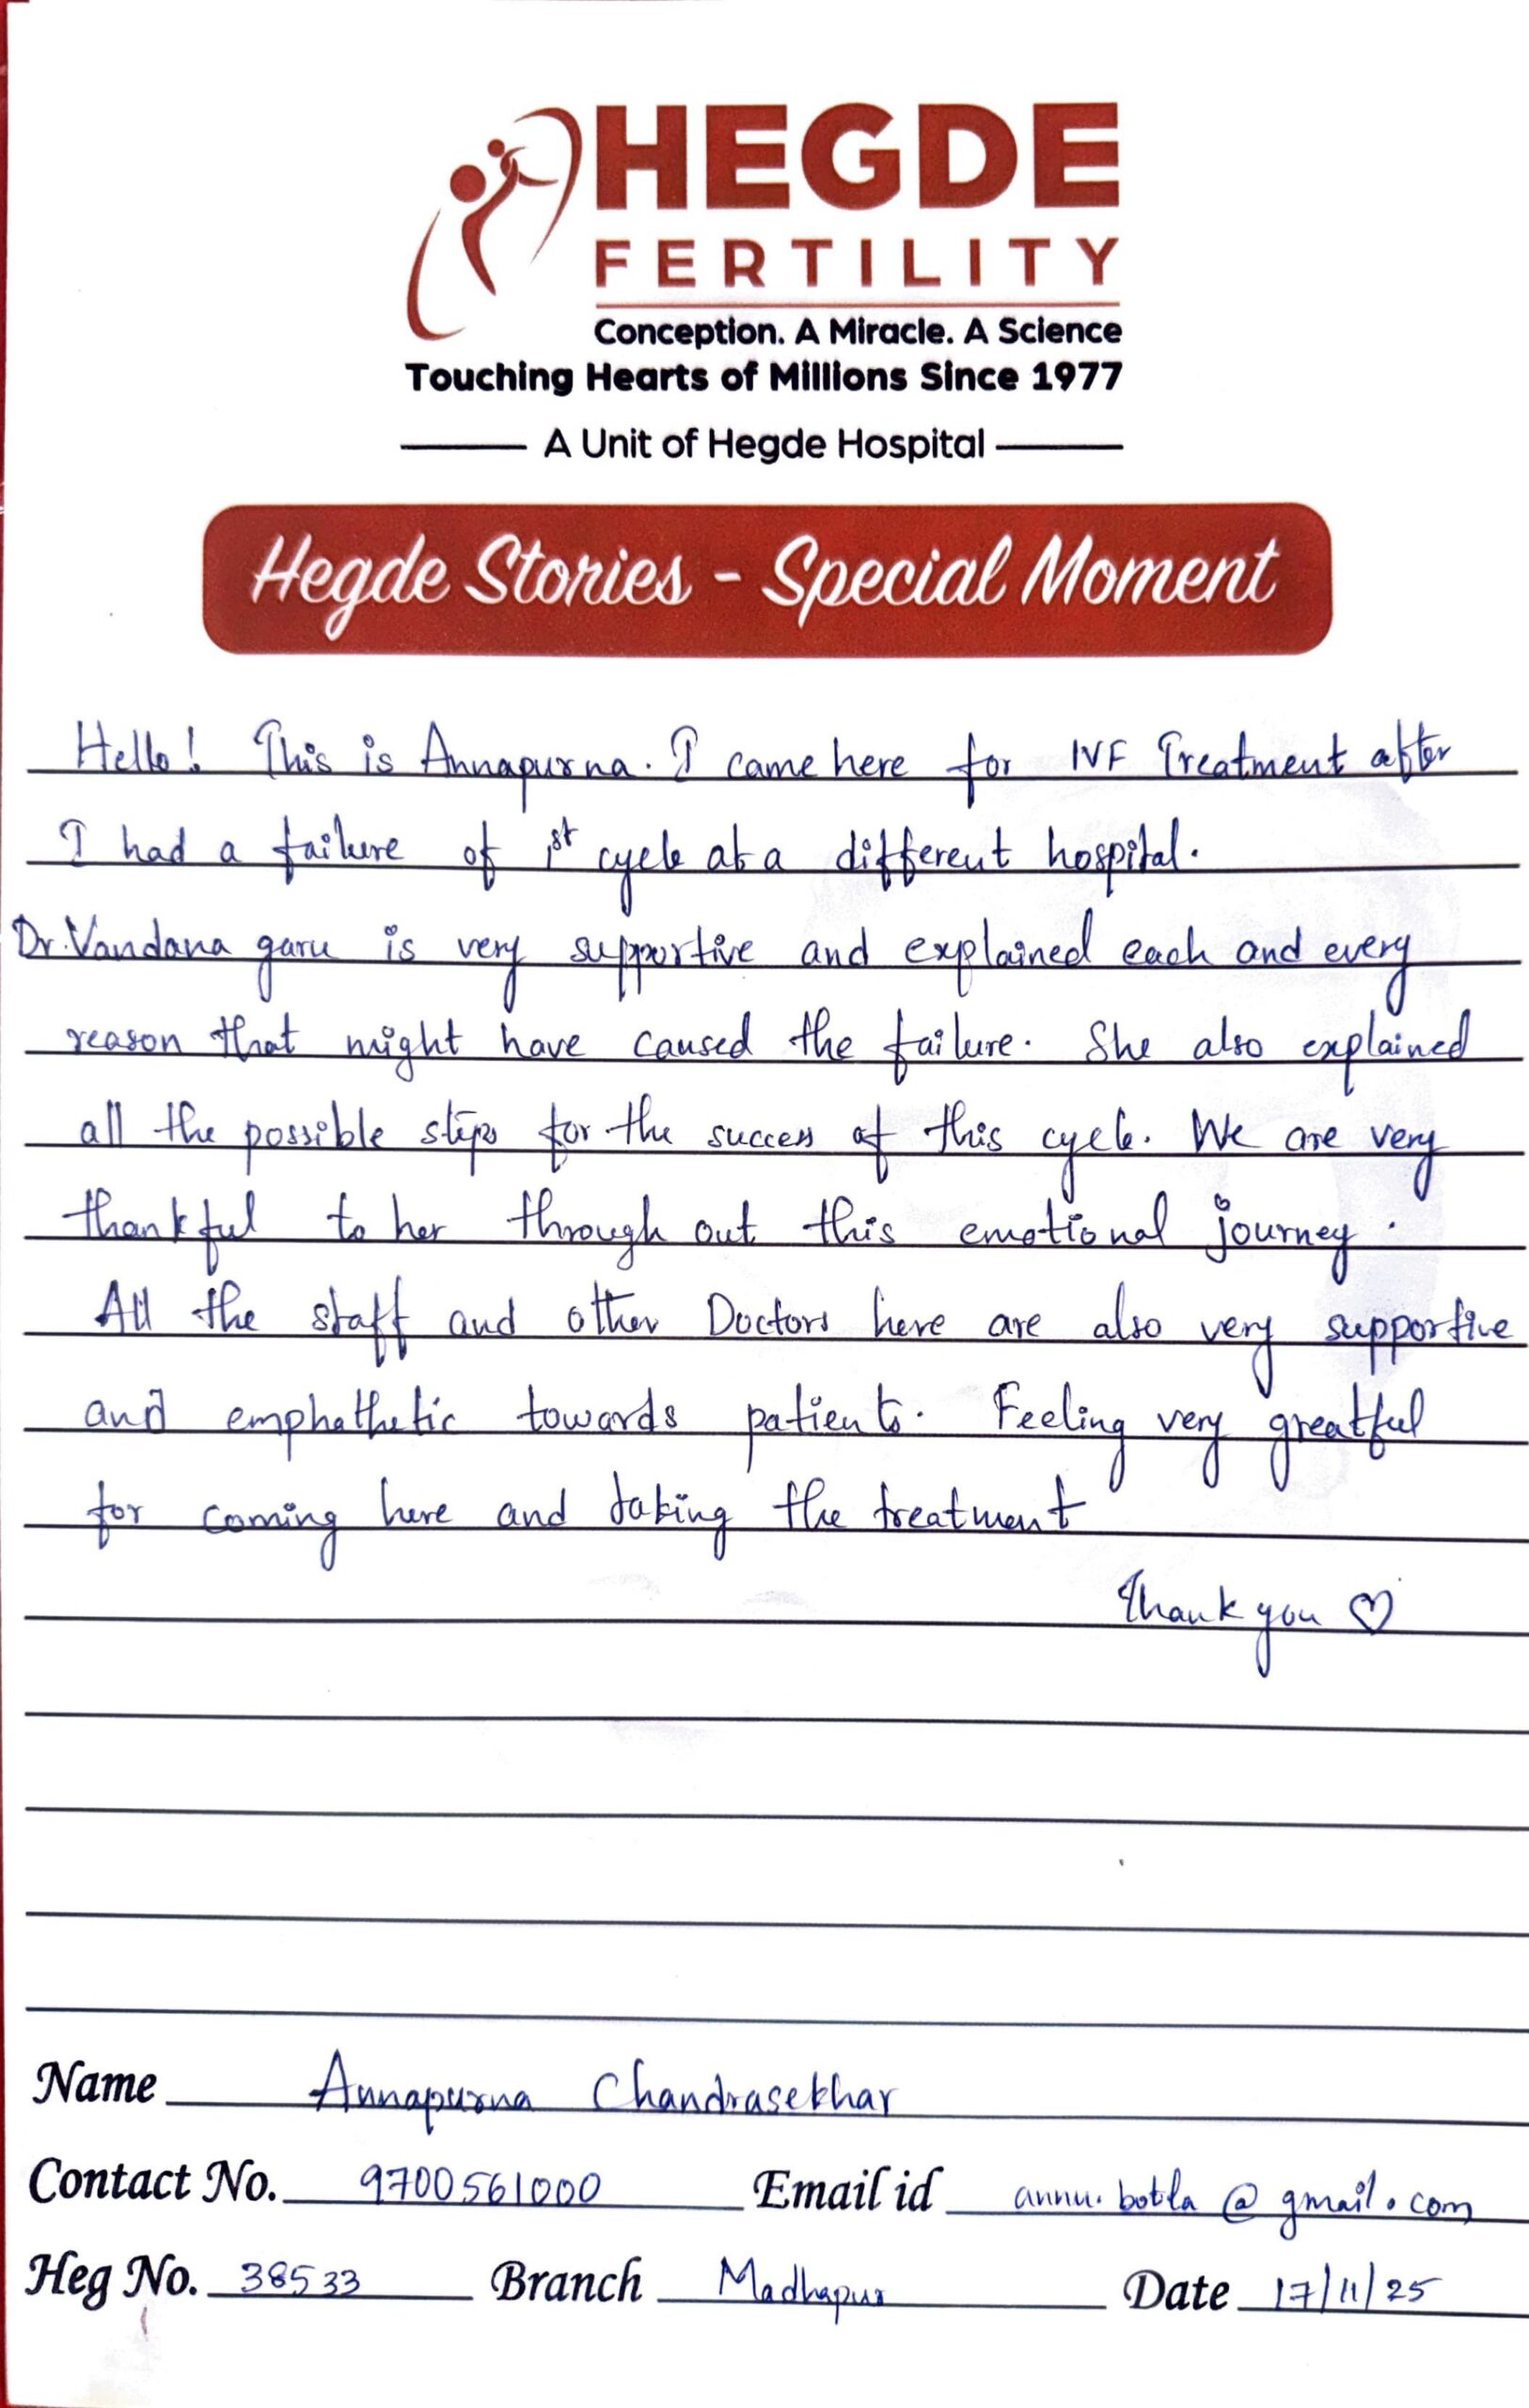 HEGDE
FERTILITY
Conception. A Miracle. A Science
Touching Hearts of Millions Since 1977
A Unit of Hegde Hospital
Hegde Stories - Special Moment
Hello! This is Annapurna. I came here for IVF Treatment after
I had a failure of 1st cycle at a different hospital.
Dr. Vandana garu is very supportive and explained each and every
reason that might have caused the failure. She also explained
all the possible steps for the success of this cycle. We are very
thankful to her through out this emotional journey.
All the staff and other Doctors here are also very supportive
and emphathetic towards patients. Feeling very greatful
for coming here and taking the treatment
Thank you ♡
Name Annapurna Chandrasekhar
Contact No. 9700561000 Email id annu.botla@gmail.com
Heg No. 38533 Branch Madhapur Date 17/11/25